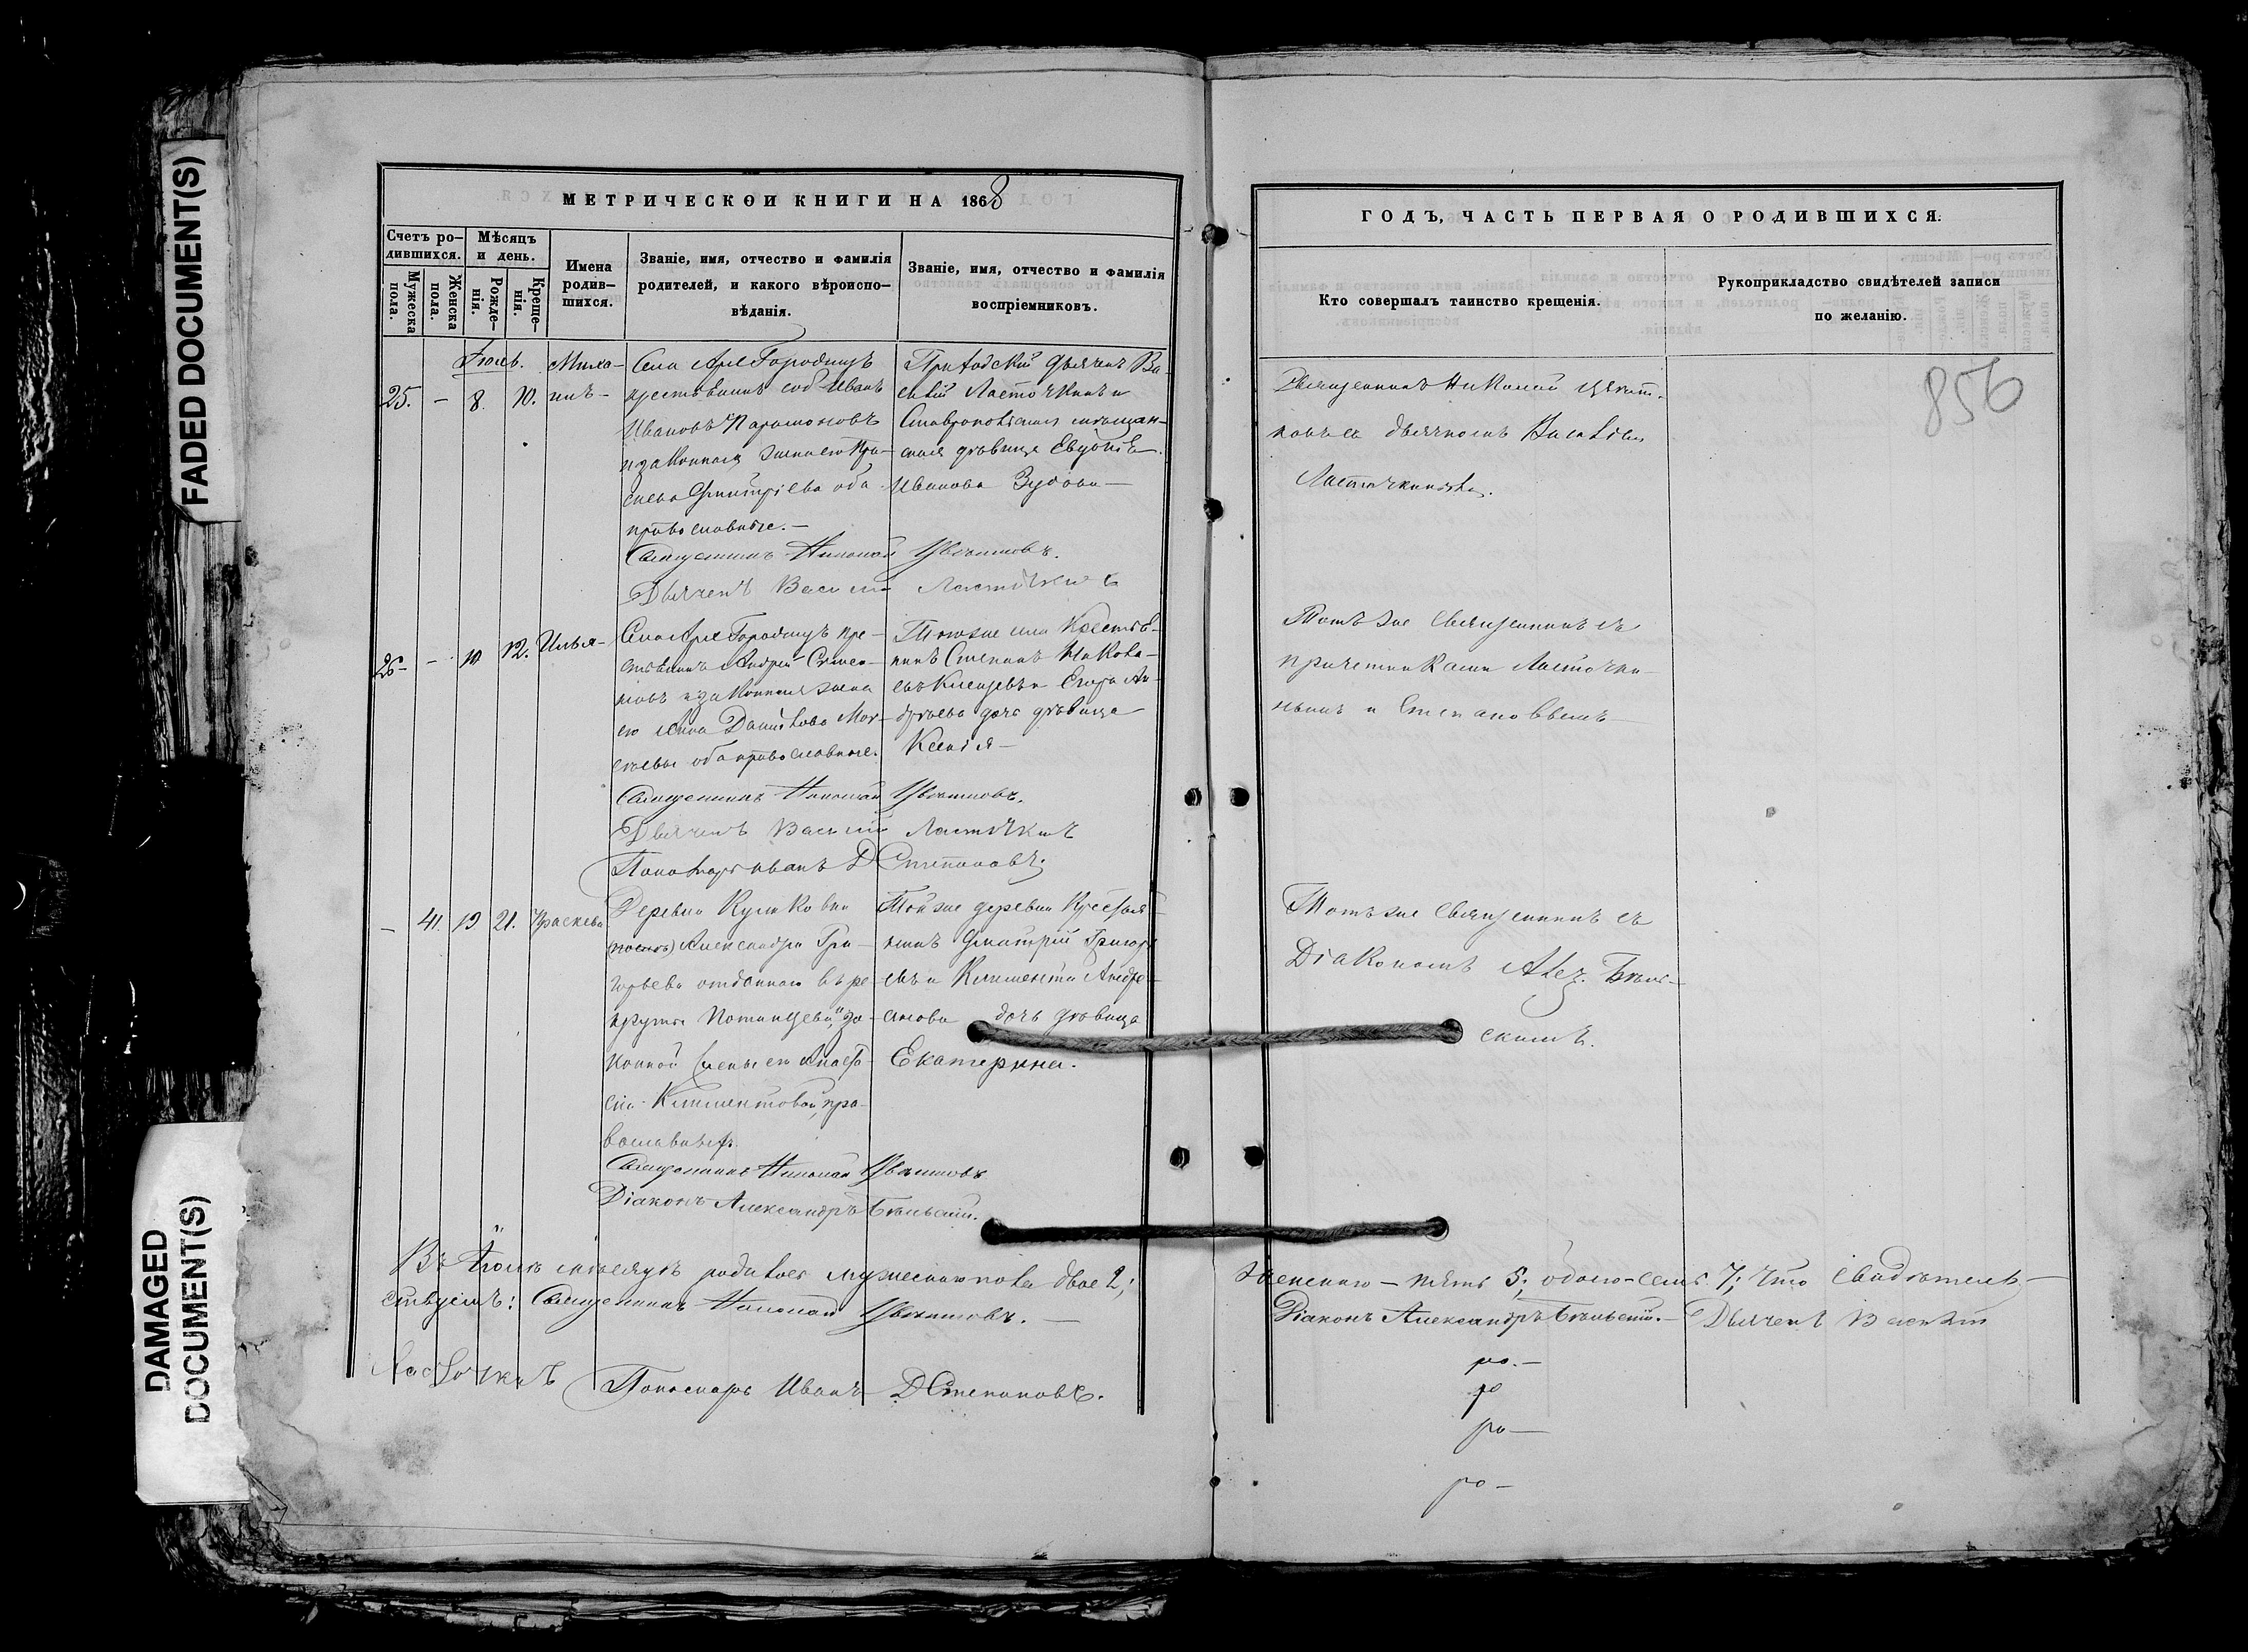 FADED DOCUMENT(S)
DAMAGED
DOCUMENT(S)
МЕТРИЧЕСКОИ КНИГИ НА 1868
Счетъ ро-
дившихся.
Мужеска
пола.
Женска
пола.
Мѣсяцъ
и день.
Рожде-
нія.
Креще-
нія.
Имена
родив-
шихся.
Званіе, имя, отчество и фамилія
родителей, и какого вѣроиспо-
вѣданія.
Званіе, имя, отчество и фамилія
воспріемниковъ.
Іюль.
25. - 8. 10.
Миха-
илъ -
Села Городищъ
крестьянинъ Иванъ
Ивановъ Парамоновъ
и законная жена его Пра-
скева Димитріева оба
православные. -
Приходскій дьячекъ Ва-
силій Ласточкинъ и
Ставропольская мѣщан-
ская дѣвица Евдокія
Иванова Зубова -
Священникъ Николай Цвѣтковъ.
Дьячекъ Василій Ласточкинъ
26 - - 10 12. Илья -
Села Городищъ кре-
стьянинъ Андрей Симео-
новъ и законная жена
его Анна Данилова
оба православные.
Тогоже села Крестья-
нинъ Степанъ Яковл-
евъ и Егора Ан-
дреева дочь дѣвица
Ксенія -
Священникъ Николай Цвѣтковъ.
Дьячекъ Василій Ласточкинъ
Пономарь Иванъ Д Степановъ.
- 41. 19 21. Праскева
Деревни Куликовки
Александра Гри-
горьева отданнаго въ ре-
круты за-
конной жены его Анаста-
сіи Климентовой, пра-
вославныхъ.
Тойже деревни Крестья-
нинъ Димитрій Григорь-
евъ и Климента Андре-
анова дочь дѣвица
Екатерина.
Священникъ Николай Цвѣтковъ
Діаконъ Александръ Бѣльскій.
Въ Іюлѣ мѣсяцѣ родилось мужескаго пола двое 2;
ствуемъ: Священникъ Николай Цвѣтковъ. -
Ласточкинъ Пономарь Иванъ Д Степановъ.
ГОДЪ, ЧАСТЬ ПЕРВАЯ О РОДИВШИХСЯ.
Кто совершалъ таинство крещенія.
Рукоприкладство свидѣтелей записи
по желанію.
856
Священникъ Николай Цвѣт-
ковъ съ дьячкомъ Василіемъ
Ласточкинымъ.
Тотъ же Священникъ съ
причетниками Ласточки-
нымъ и Степановымъ
Тотъ же Священникъ съ
Діакономъ Алез. Бѣль-
скимъ.
Женскаго - пять 5; обоего - семь 7; что свидѣтель-
Діаконъ Александръ Бѣльскій. - Дьячекъ Василій